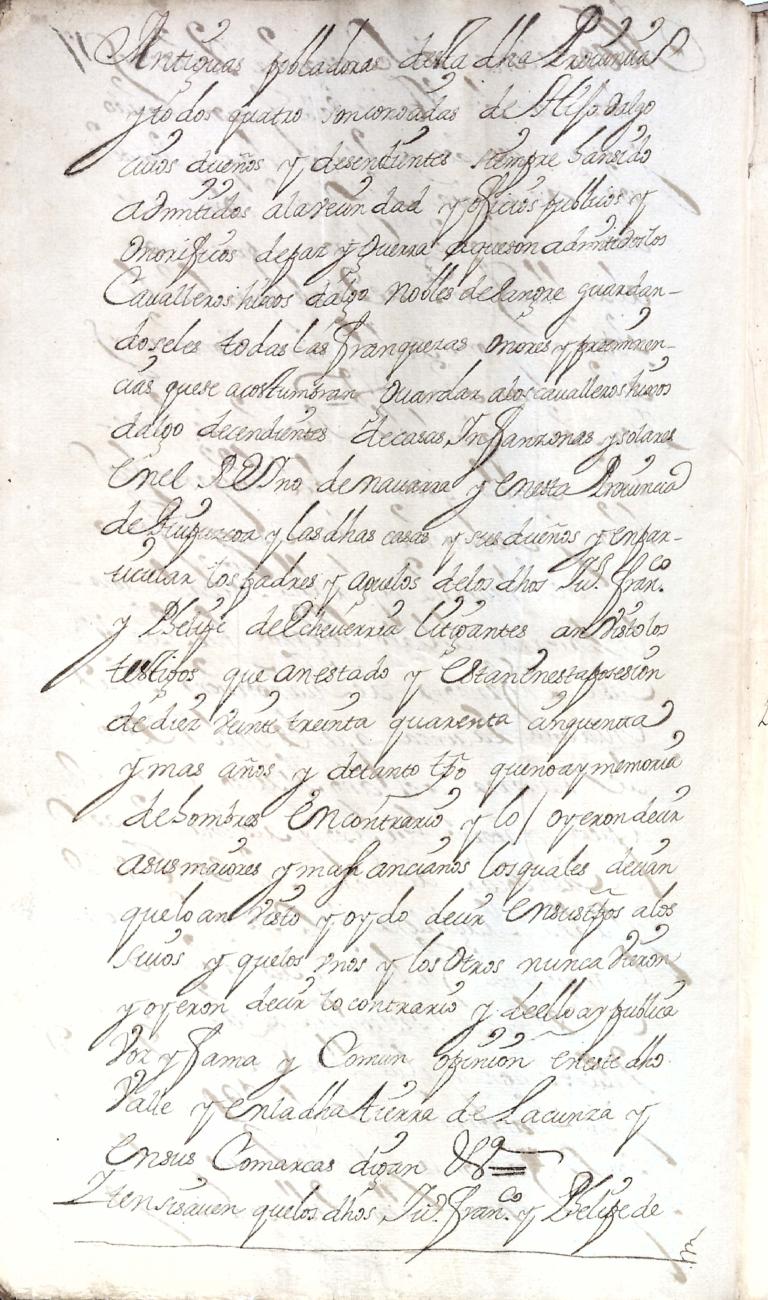 Antiguas pobladoras de la dha Prouinçia
y todos quatro son conoçidas de Hijosdalgo
cuios dueños y desendientes siempre han sido
admitidos ala veçindad y ofiçios publicos y
onorificos de paz y Guerra a que son admitidos los
Caualleros hixos dalgo nobles de sangre guardan-
doseles todas las franquezas onores y preminen-
çias que se acostumbran Guardar a los caualleros hixos
dalgo decendientes de casas Infanzonas y solares
En el REyno de nauarra y en esta Prouinçia
de Guipuzcoa y las dhas casas y sus dueños y en par-
ticular los padres y aguelos de los dhos Ju.º fran.co
y Phelipe de Echeuerria litigantes an Visto los
testigos que an estado y Estan En esta posesion
de diez veinte treinta quarenta çinquenta
y mas años y de tanto tpo que no ay memoria
de hombres En contrario y lo oyeron decir
a sus maiores y mas ançianos los quales deçian
que lo an Visto y oydo decir En sus tpos a los
suios y que los vnos y los Otros nunca Vieron
y oyeron decir lo contrario y de ello ay publica
Voz y fama y Comun opinion en este dho
Valle y en la dha tierra de Lacunza y
en sus Comarcas digan
Iten si sauen que los dhos Ju.º fran.co y Phelipe de